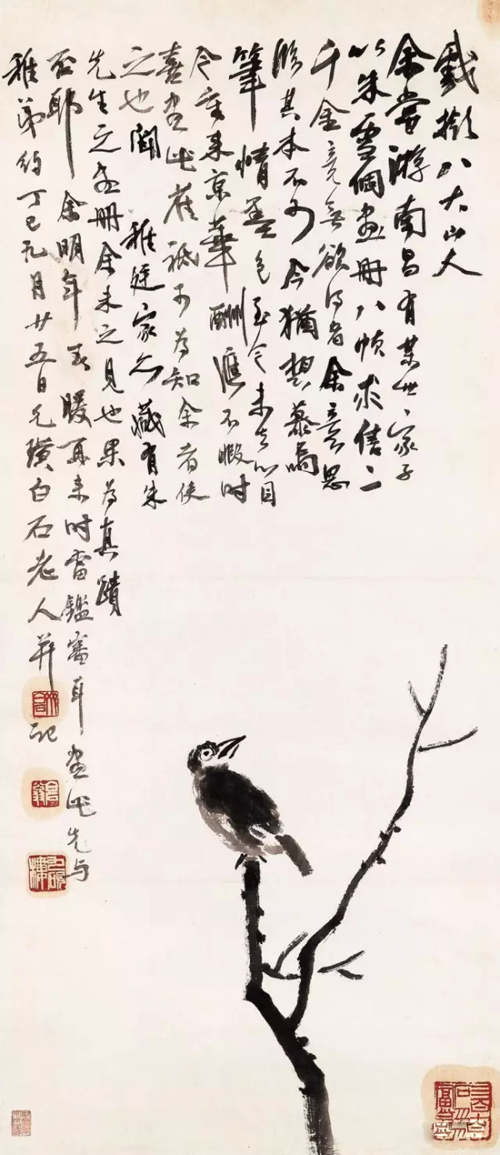 戲擬八大山人
余嘗游南昌有某世〻家子
以朱雪個畫冊八幀求售二
千金竟無欲得者余意思
臨其本不可今猶想慕焉
筆情墨色至今未去心目
今重来京華酬應不暇時
喜畫此雀祗可為知余者使
之也聞 稚廷家亦藏有朱
先生之畫冊余未之見也果為真蹟
否耶余明年春暖再来時當鑑審耳畫此先与
稚弟約丁巳元月廿五日兄璜白石老人并記